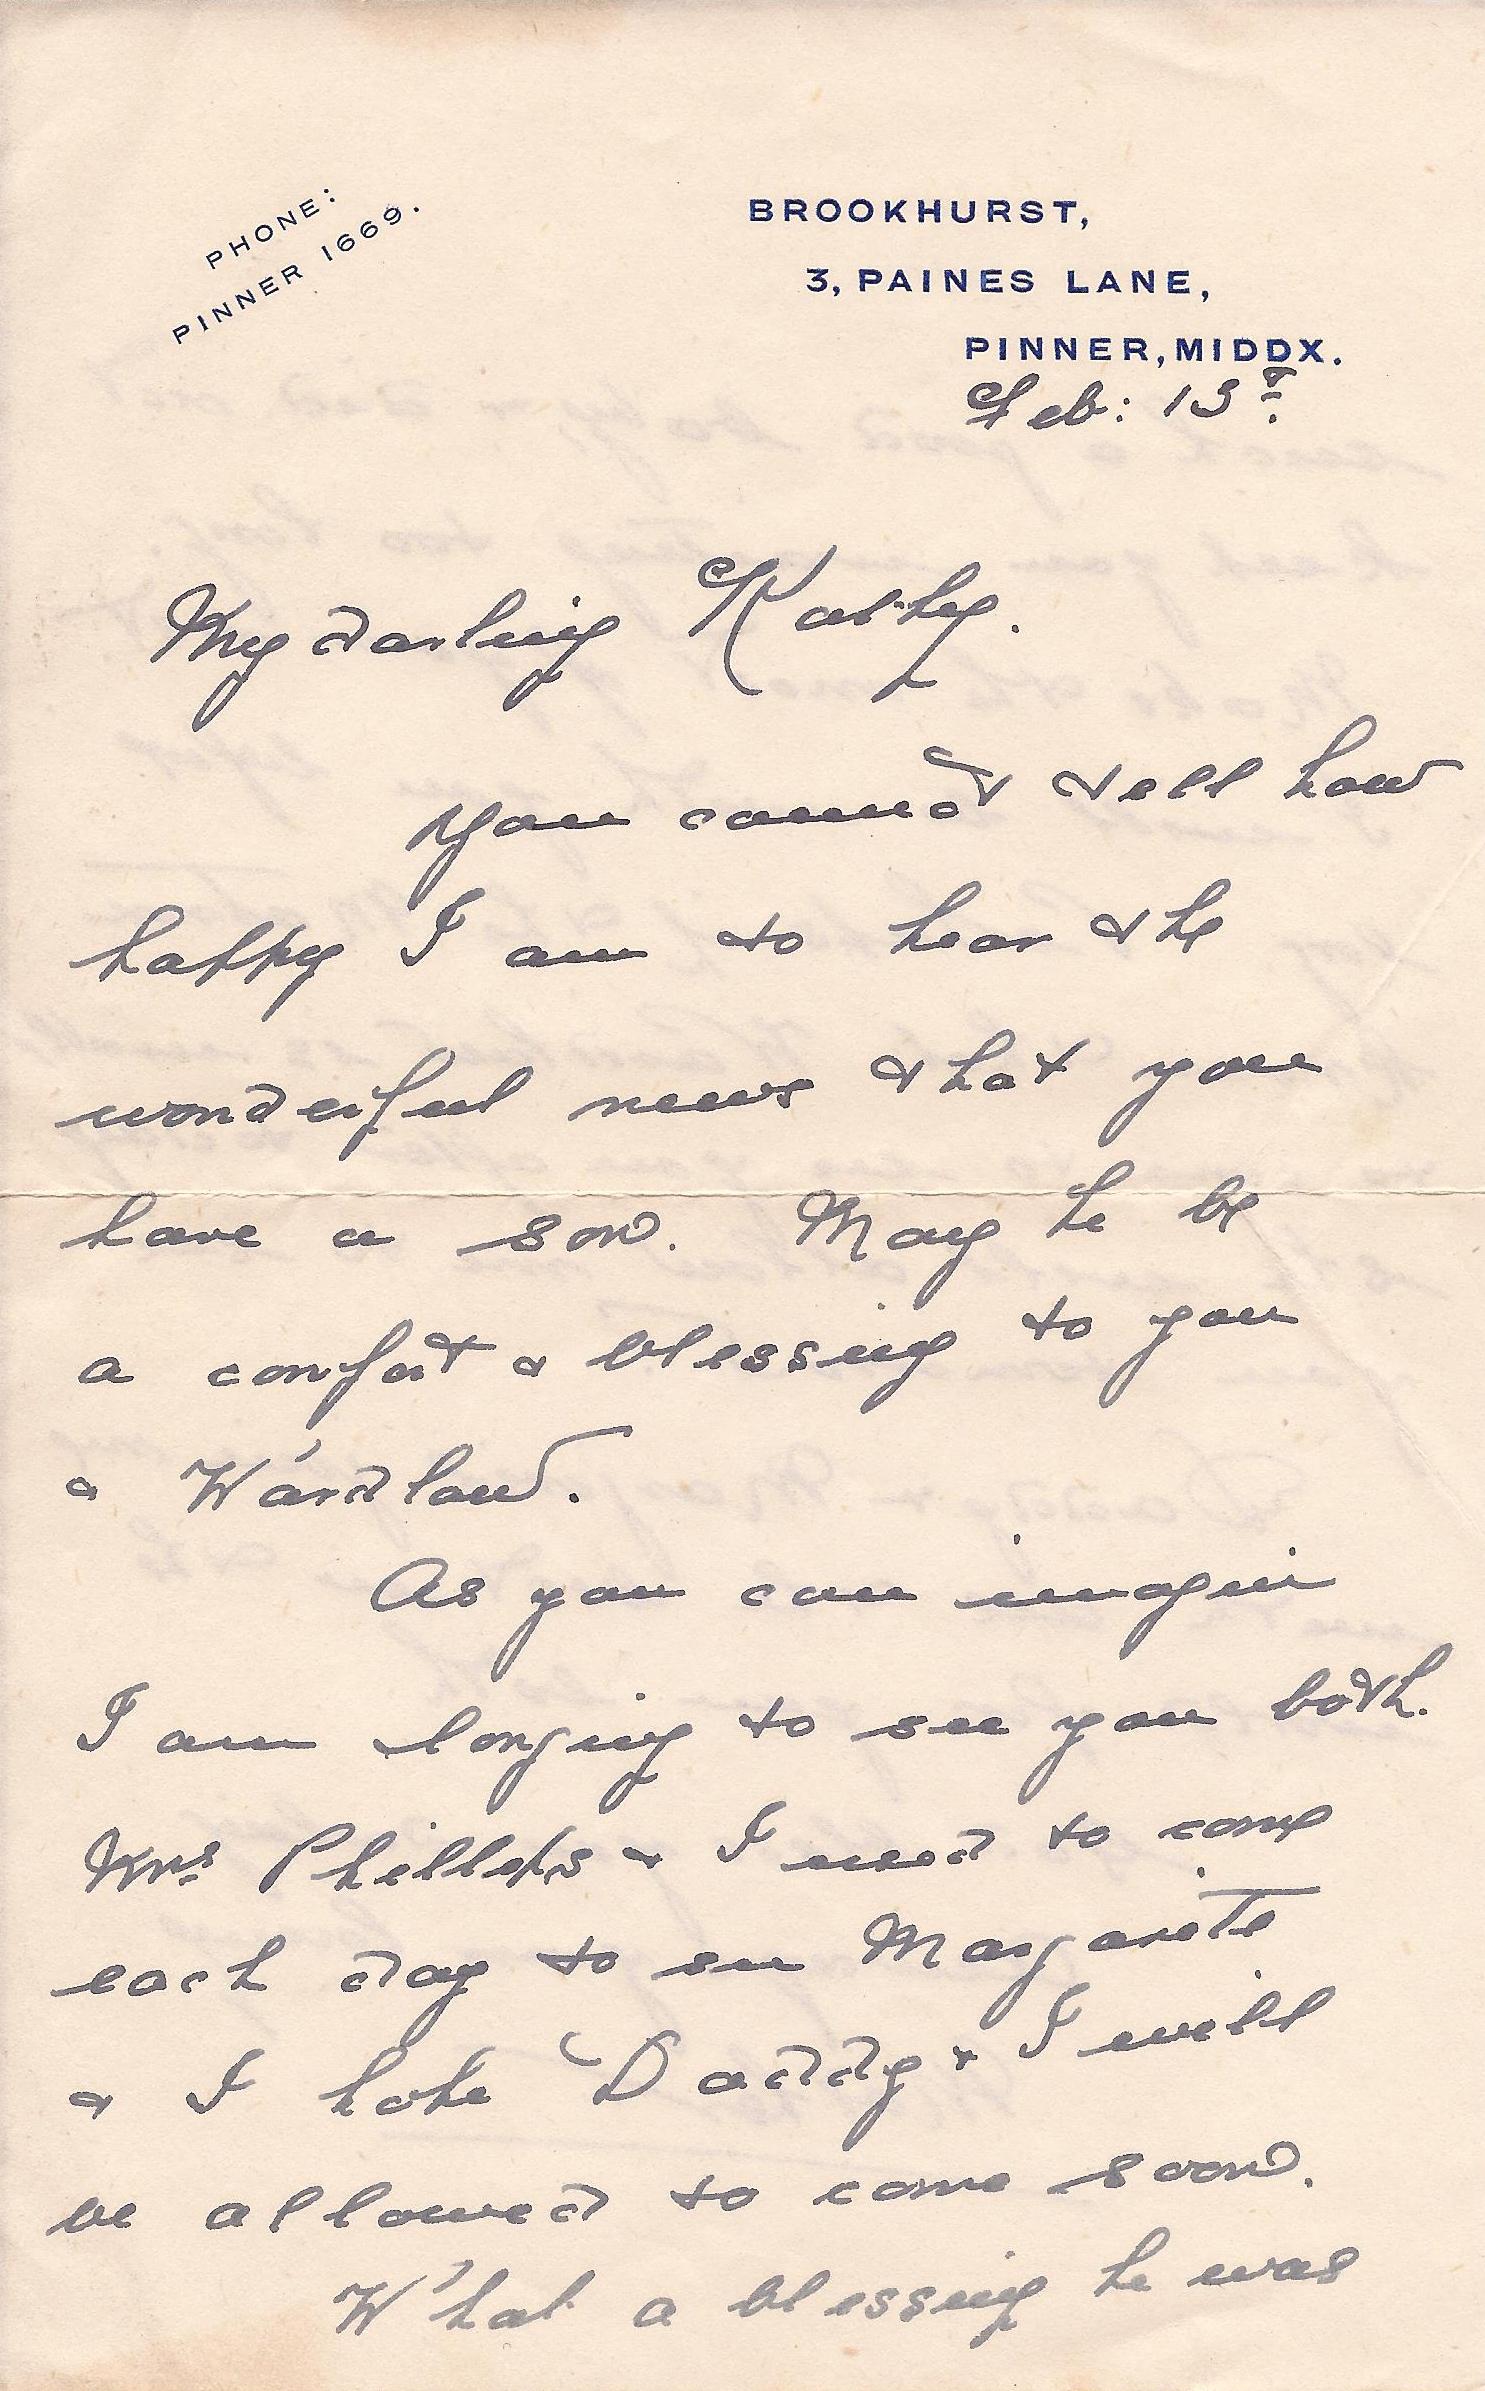 PHONE:
PINNER 1669.
BROOKHURST,
3, PAINES LANE,
PINNER, MIDDX.
Feb: 13th
My darling Kathy.
You cannot tell how
happy I am to hear the
wonderful news that you
have a son. May he be
a comfort & blessing to you
& Wardlaw.
As you can imagin
I am longing to see you both.
Mrs Phillips & I used to come
each day to see Margarete
& I hope Daddy & I will
be allowed to come soon.
What a blessing he was